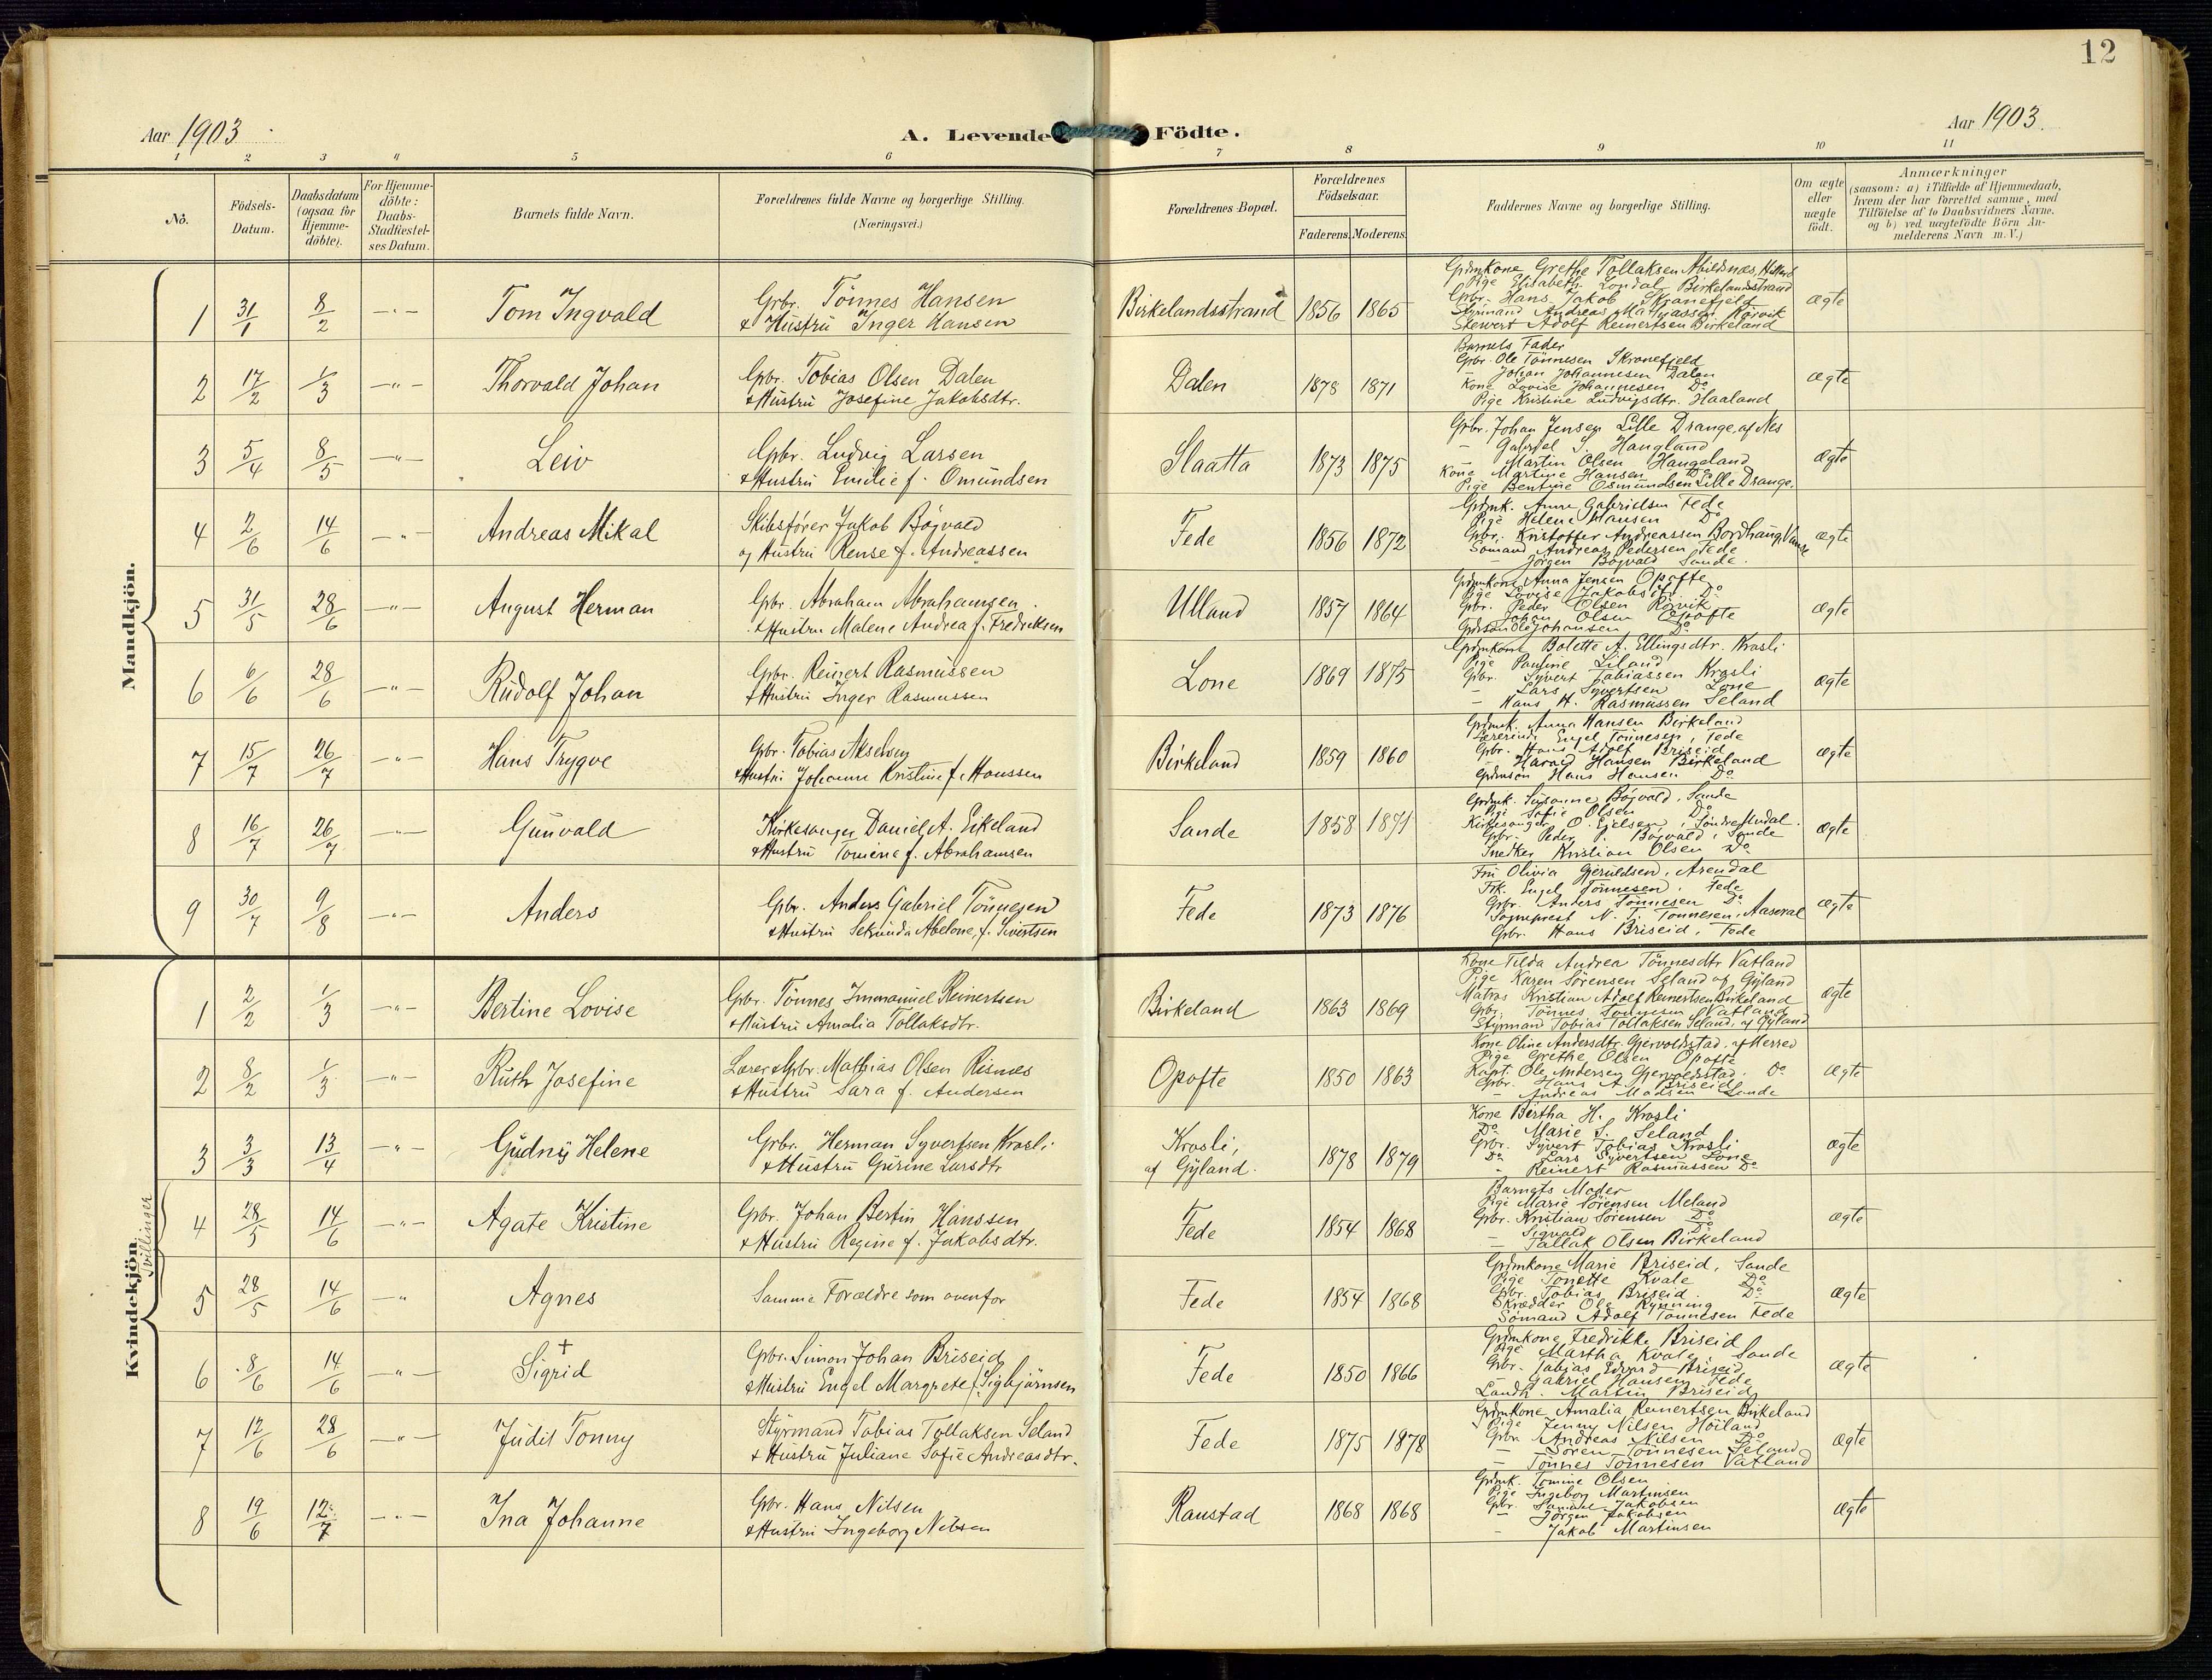 12
Aar 1903.
A. Levende Födte.
Aar 1903.
1 2 3 4 5 6 7 8 9 10 11
No.
Födsels-Datum.
Daabsdatum (ogsaa for Hjemme-döbte).
For Hjemme-döbte: Daabs-Stadfæstel-ses Datum.
Barnets fulde Navn.
Forældrenes fulde Navne og borgerlige Stilling.
(Næringsvei.)
Forældrenes Bopæl.
Forældrenes Födselsaar.
Faderens. Moderens.
Faddernes Navne og borgerlige Stilling.
Om ægte eller uægte födt.
Anmærkninger
(saasom: a) i Tilfælde af Hjemmedaab,
hvem der har forrettet samme, med
Tilföielse af to Daabsvidners Navne.
og b) ved uægtefödte Börn An-
melderens Navn m. V.)
Mandkjön.
1 31/1 8/2 -"- Tom Ingvald
Gbr. Tönnes Hansen
& Hustru Inger Hansen
Birkelandsstrand 1856 1865
Gdmkone Grethe Tollaksen Abildsnes,
Pige Elisabeth Londal Birkelandsstrand
Gbr. Hans Jakob Skranefjeld
Styrmand Andreas Mathiassen Rörvik
Stewert Adolf Reinertsen Birkeland
ægte
2 17/2 1/3 -"- Thorvald Johan
Gbr. Tobias Olsen Dalen
& Hustru Josefine Jakobsdtr.
Dalen 1878 1871
Barnets Fader
Gbr. Ole Tönnesen Skranefjeld
- Johan Johannesen Dalen
Kone Lovise Johannesen Do
Pige Kristine Ludvigsdtr. Haaland
ægte
3 5/4 8/5 -"- Leiv
Gbr. Ludvig Larsen
& Hustru Emilie f. Omundsen
Slaatta 1873 1875
Gbr. Johan Jensen Lille Drange, af Nes
- Gabriel S. Haugland
- Martin Olsen Haugeland
Kone Martine Hansen Do
Pige Bentine Osmundsen Lille Drange.
ægte
4 2/6 14/6 -"- Andreas Mikal
Skibsförer Jakob Böjvald
og Hustru Rense f. Andreassen
Fede 1856 1872
Gdmk. Anne Gabrielsen Fede
Pige Helene Hansen Do
Gbr. Kristoffer Andreassen Bordhaug, Vanse
Sömand Andreas Pedersen Fede
- Jörgen Böjvald Sande.
ægte
5 31/5 28/6 -"- August Herman
Gbr. Abraham Abrahamsen
& Hustru Malene Andrea f. Fredriksen
Ulland 1857 1864
Gdmkone Anna Jensen Opofte
Pige Lovise Jakobsdtr. Do
Gbr. Peder Olsen Rörvik
- Johan Olsen Opofte
Gdmsön Ole Johansen Do
ægte
6 6/6 28/6 -"- Rudolf Johan
Gbr. Reinert Rasmussen
& Hustru Inger Rasmussen
Lone 1869 1875
Gdmkone Bolette A. Ellingsdtr. Krosli
Pige Pauline Liland
Gbr. Syvert Tobiassen Krosli
- Lars Syvertsen Lone
- Hans H. Rasmussen Seland
ægte
7 15/7 26/7 -"- Hans Trygve
Gbr. Tobias Akselsen
& Hustru Johanne Kristine f. Hanssen
Birkeland 1859 1860
Gdmk. Anna Hansen Birkeland
Lærerinde Engel Tönnesen, Fede
Gbr. Hans Adolf Briseid
- Harald Hansen Birkeland
Gdmsön Hans Hansen Do
ægte
8 16/7 26/7 -"- Gunvald
Kirkesanger Daniel A. Eikeland
& Hustru Tomine f. Abrahamsen
Sande 1858 1871
Gdmk. Susanne Böjvald, Sande
Pige Sofie Olsen Do
Kirkesanger O. Ejelsen, Söndre Undal.
Gbr. Peder Böjvald, Sande
Snedker Kristian Olsen Do
ægte
9 30/7 9/8 -"- Anders
Gbr. Anders Gabriel Tönnesen
& Hustru Sekunda Abelone, f. Sivertsen
Fede 1873 1876
Fru Olivia Gjeruldsen, Arendal
Frk. Engel Tönnesen, Fede
Gbr. Anders Tönnesen Do
Sogneprest N. T. Tönnesen, Aaseral
Gbr. Hans Briseid, Fede
ægte
Kvindekjön.
1 2/2 1/3 -"- Bertine Lovise
Gbr. Tönnes Immanuel Reinertsen
& Hustru Amalia Tollaksdtr.
Birkeland 1863 1869
Kone Tilda Andrea Tönnesdtr Vatland
Pige Karen Sörensen Seland af Gyland
Matros Kristian Adolf Reinertsen Birkeland
Gbr. Tönnes Tönnesen Vatland
Styrmand Tobias Tollaksen Seland, af Gyland
ægte
2 8/2 1/3 -"- Ruth Josefine
Lærer & Gbr. Mathias Olsen Risnes
& Hustru Sara f. Andersen
Opofte 1850 1863
Kone Oline Andersdtr. Gjervoldstad, af Herred
Pige Grethe Olsen Opofte
Kapt. Ole Andersen Gjervoldstad. Do
Gbr. Hans A. Briseid
- Andreas Madsen Sande
ægte
3 3/3 13/4 -"- Gudny Helene
Gbr. Herman Syvertsen Krosli
& Hustru Gurine Larsdtr
Krosli, af Gyland. 1878 1879
Kone Bertha H. Krosli
Do Marie S. Seland
Gbr. Syvert Tobias Krosli
Do Lars Syvertsen Lone
- Reinert Rasmussen Do
ægte
Tvillinger
4 28/5 14/6 -"- Agate Kristine
Gbr. Johan Bertin Hanssen
& Hustru Regine f. Jakobsdtr.
Fede 1854 1868
Barnets Moder
Pige Marie Sörensen Meland
Gbr. Kristian Sörensen Do
- Sigvald Do
- Tallak Olsen Birkeland
ægte
5 28/5 14/6 -"- Agnes
Samme Forældre som ovenfor
Fede 1854 1868
Gdmkone Marie Briseid, Sande
Pige Tonette Kvale Do
Gbr. Tobias Briseid. Do
Skrædder Ole Rynning
Sömand Adolf Tönnesen Fede
ægte
6 8/6 14/6 -"- Sigrid +
Gbr. Simon Johan Briseid
& Hustru Engel Margrete f. Sigbjörnsen
Fede 1850 1866
Gdmkone Fredrikke Briseid
Pige Martha Kvale, Sande
Gbr. Tobias Edvard Briseid
- Gabriel Hansen Fede
Landh. Martin Briseid
ægte
7 12/6 28/6 -"- Judit Tonny
Styrmand Tobias Tollaksen Seland
& Hustru Juliane Sofie Andreasdtr.
Fede 1875 1878
Gdmkone Amalia Reinertsen Birkeland
Pige Jenny Nilsen Höiland
Gbr. Andreas Nilsen Do
- Sören Tönnesen Seland
- Tönnes Tönnesen Vatland
ægte
8 19/6 12/7 -"- Ina Johanne
Gbr. Hans Nilsen
& Hustru Ingeborg Nilsen
Raustad 1868 1868
Gdmk. Tomine Olsen
Pige Ingeborg Martinsen
Gbr. Samuel Jakobsen
- Jörgen Jakobsen
- Jakob Martinsen
ægte